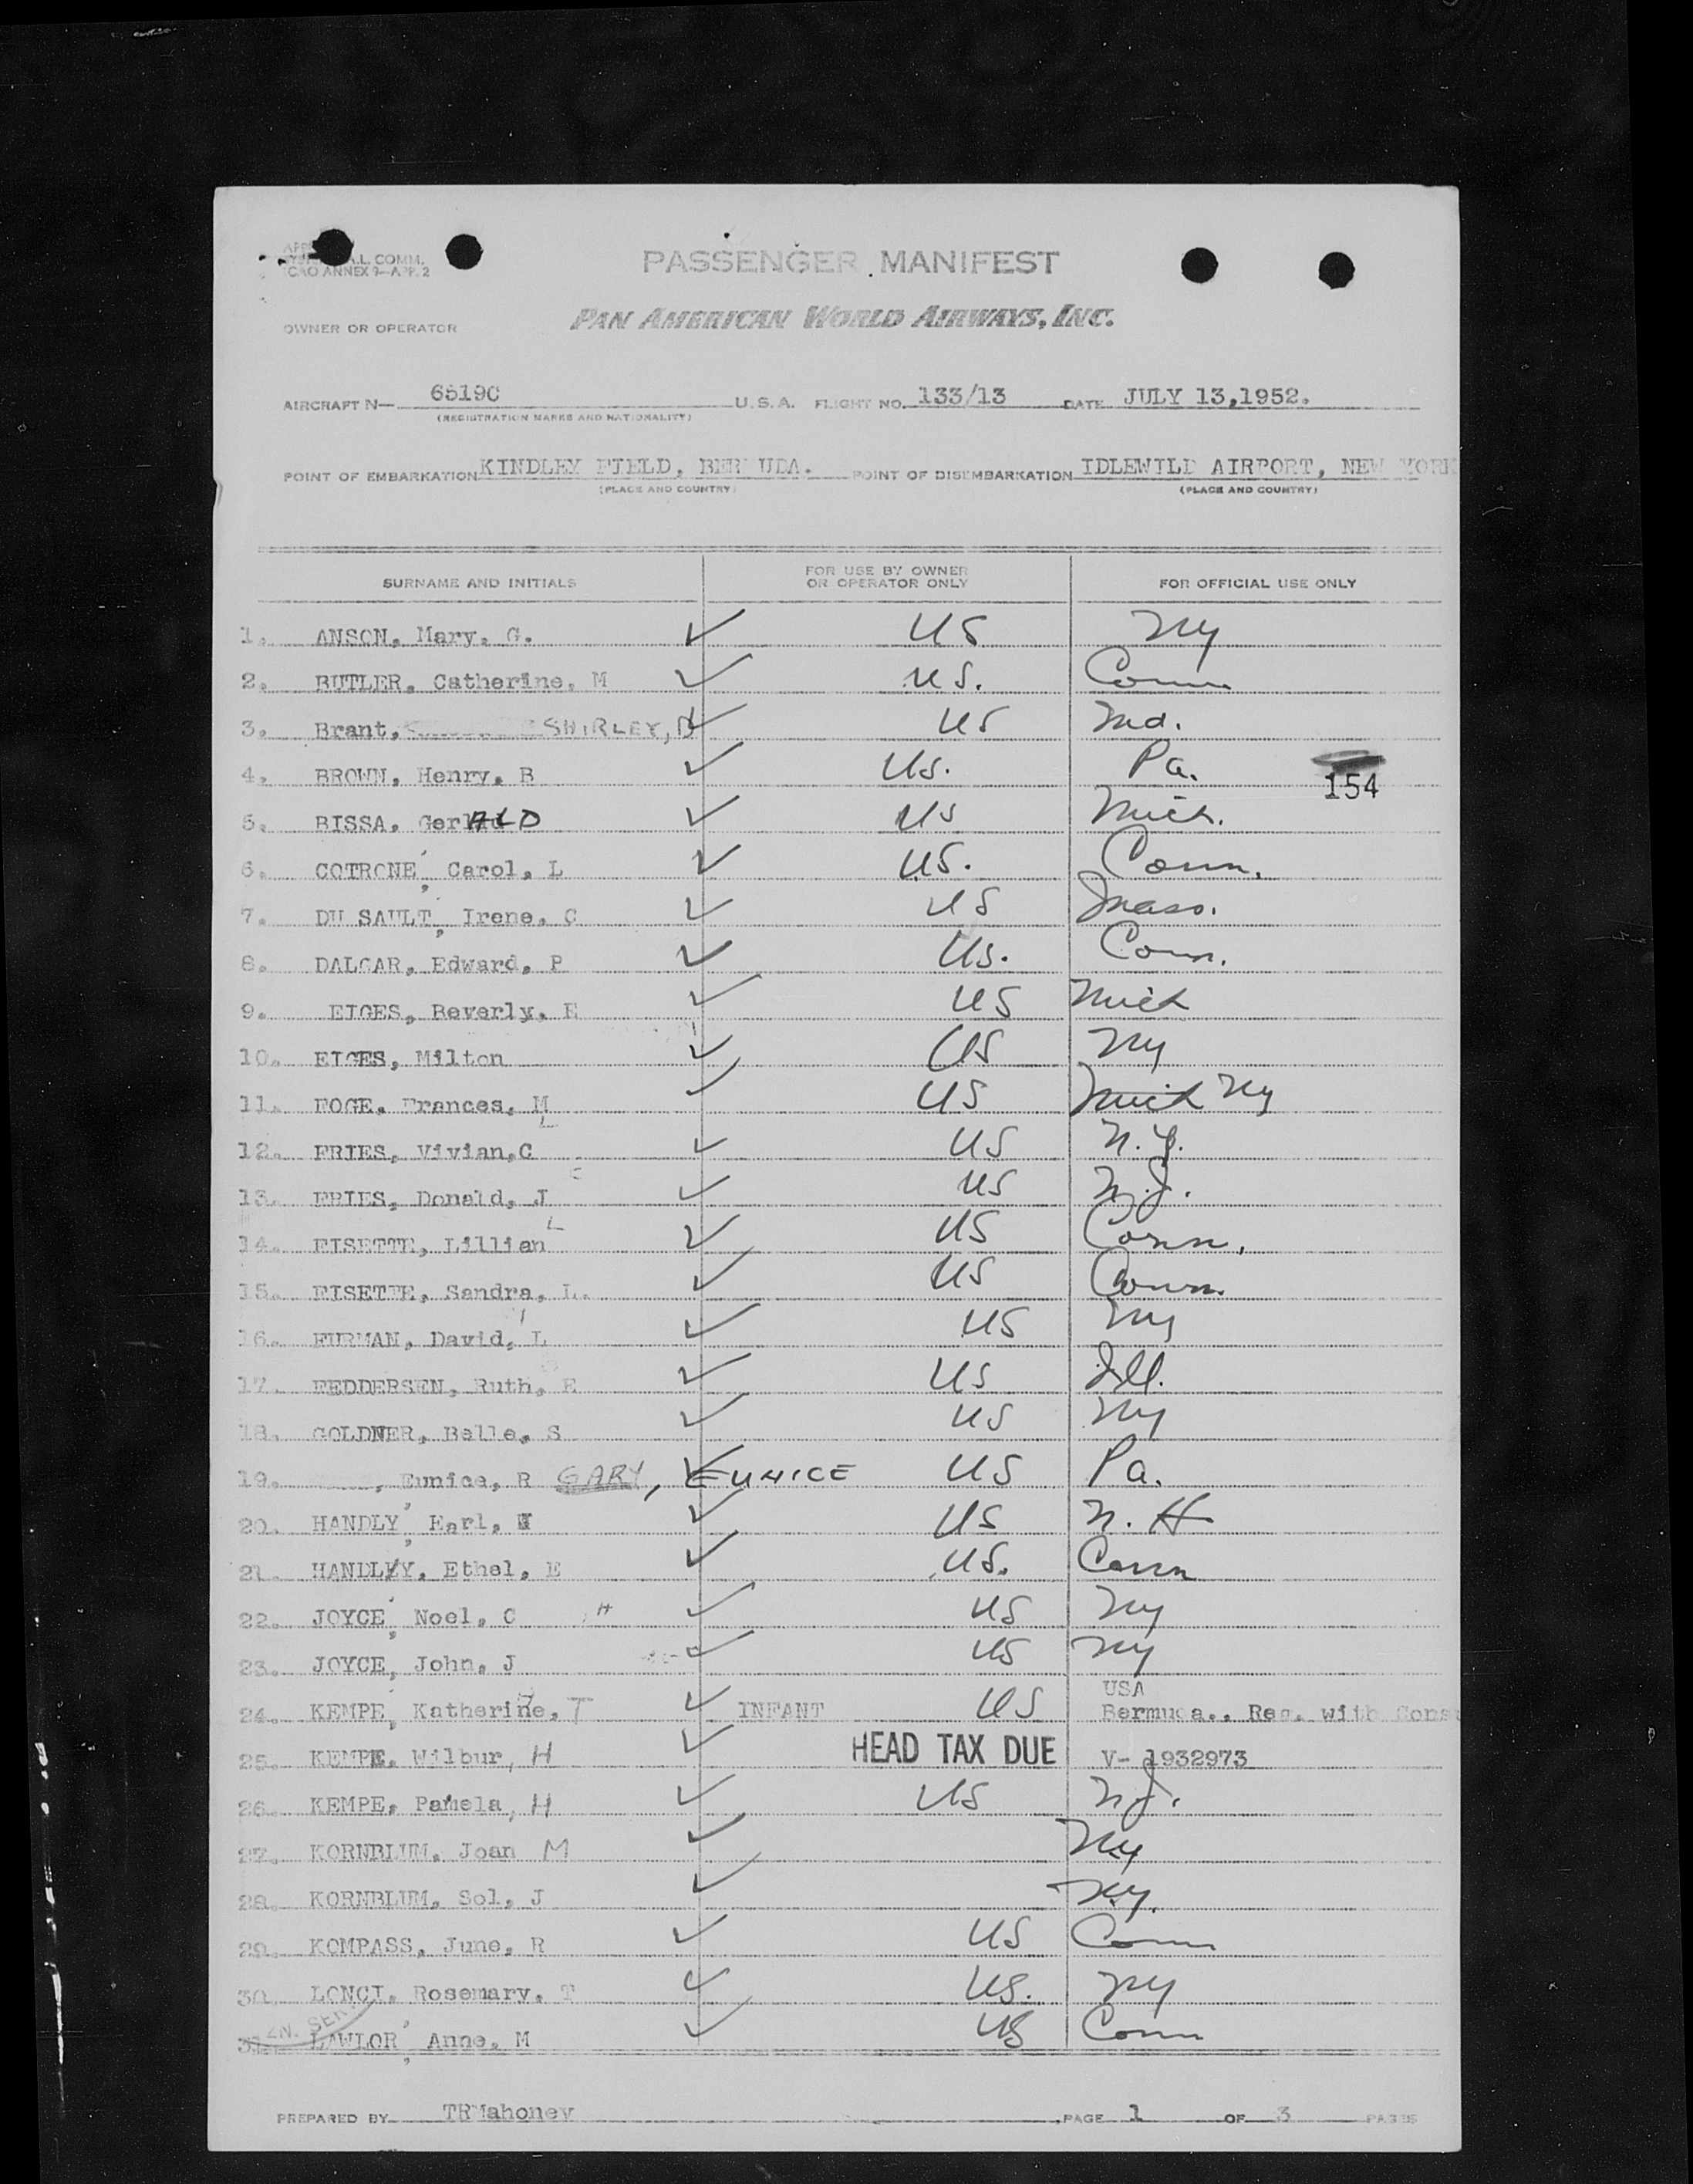 A.L. COMM.
ICAO ANNEX 9—APP. 2
PASSENGER MANIFEST
OWNER OR OPERATOR PAN AMERICAN WORLD AIRWAYS, INC.
AIRCRAFT N— 6519C U.S.A. FLIGHT NO. 133/13 DATE JULY 13,1952.
(REGISTRATION MARKS AND NATIONALITY)
POINT OF EMBARKATION KINDLEY FIELD, BER UDA. POINT OF DISEMBARKATION IDLEWILD AIRPORT, NEW YORK
(PLACE AND COUNTRY) (PLACE AND COUNTRY)
SURNAME AND INITIALS FOR USE BY OWNER OR OPERATOR ONLY FOR OFFICIAL USE ONLY
1. ANSON, Mary, G. ✓ US NY
2. BUTLER, Catherine, M ✓ U.S. Conn
3. Brant, SHIRLEY, D ✓ US Md.
4. BROWN, Henry, B ✓ US. Pa.
154
5. BISSA, Gerald ✓ US Mich.
6. COTRONE, Carol, L ✓ US. Conn.
7. DU SAULT, Irene, C ✓ US Mass.
8. DALGAR, Edward, P ✓ US. Conn.
9. EIGES, Beverly, E ✓ US Mich
10. EIGES, Milton ✓ US NY
11. FOGE, Frances, M ✓ US Mich NY
12. FRIES, Vivian,C ✓ US N.J.
13. FRIES, Donald, J ✓ US N.J.
14. FISETTE, Lillian L ✓ US Conn.
15. FISETTE, Sandra, L. ✓ US Conn.
16. FURMAN, David, L ✓ US NY
17. FEDDERSEN, Ruth, E ✓ US Ill.
18. GOLDNER, Belle, S ✓ US NY
19. , Eunice, R GARY, EUNICE ✓ US Pa.
20. HANDLY, Earl, ✓ US N.H
21. HANDLEY, Ethel, E ✓ US. Conn
22. JOYCE, Noel, C H ✓ US NY
23. JOYCE, John, J ✓ US NY
USA
24. KEMPE, Katherine, T ✓ INFANT US Bermuda., Reg. with Cons
25. KEMPE, Wilbur, H ✓ HEAD TAX DUE V- 1932973
26. KEMPE, Pamela, H ✓ US N.J.
27. KORNBLUM, Joan M ✓ NY
28. KORNBLUM, Sol, J ✓ N.Y.
29. KOMPASS, June, R ✓ US Conn
30. LONCI, Rosemary, T ✓ US. NY
31. LAWLOR, Anne, M ✓ US Conn
PREPARED BY TRMahoney PAGE 1 OF 3 PAGES